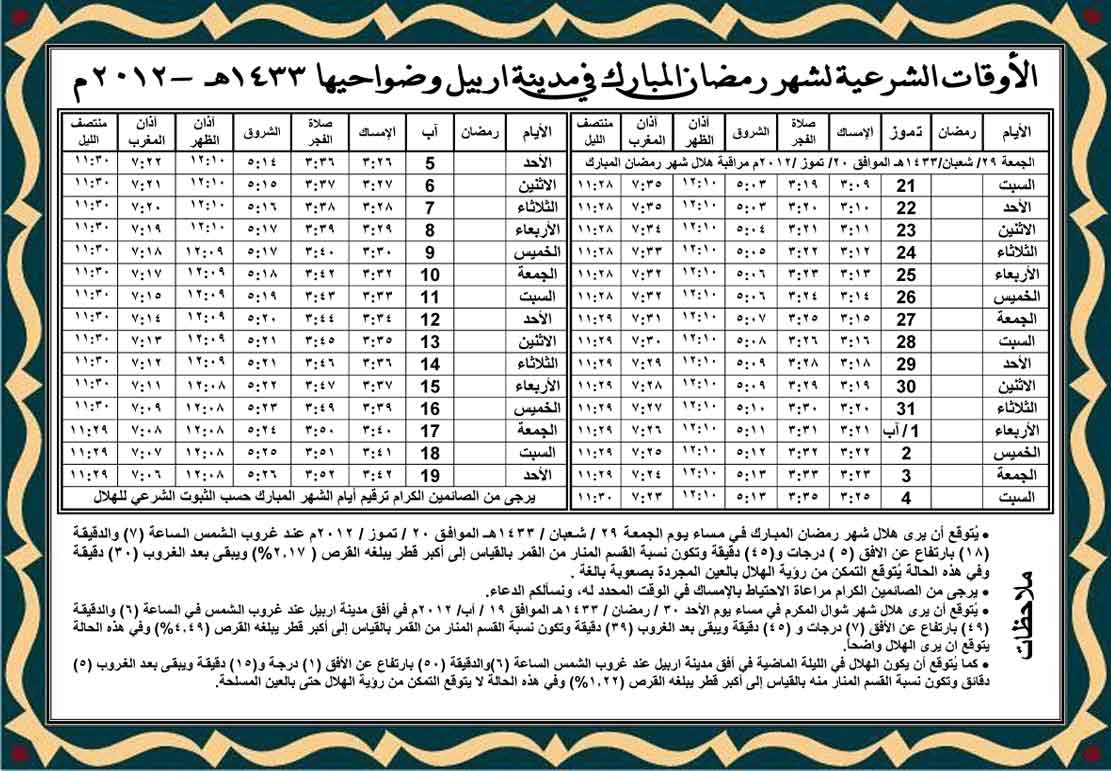 الأوقات الشرعية لشهر رمضان المبارك في مدينة اربيل وضواحيها ١٤٣٣هـ - ٢٠١٢م
الأيام رمضان تموز الإمساك صلاة الفجر الشروق أذان الظهر أذان المغرب منتصف الليل
الجمعة ٢٩/ شعبان/١٤٣٣هـ الموافق ٢٠/ تموز /٢٠١٢م مراقبة هلال شهر رمضان المبارك
السبت 21 ٣:٠٩ ٣:١٩ ٥:٠٣ ١٢:١٠ ٧:٣٥ ١١:٢٨
الأحد 22 ٣:١٠ ٣:٢٠ ٥:٠٣ ١٢:١٠ ٧:٣٥ ١١:٢٨
الاثنين 23 ٣:١١ ٣:٢١ ٥:٠٤ ١٢:١٠ ٧:٣٤ ١١:٢٨
الثلاثاء 24 ٣:١٢ ٣:٢٢ ٥:٠٥ ١٢:١٠ ٧:٣٣ ١١:٢٨
الأربعاء 25 ٣:١٣ ٣:٢٣ ٥:٠٦ ١٢:١٠ ٧:٣٢ ١١:٢٨
الخميس 26 ٣:١٤ ٣:٢٤ ٥:٠٦ ١٢:١٠ ٧:٣٢ ١١:٢٨
الجمعة 27 ٣:١٥ ٣:٢٥ ٥:٠٧ ١٢:١٠ ٧:٣١ ١١:٢٩
السبت 28 ٣:١٦ ٣:٢٦ ٥:٠٨ ١٢:١٠ ٧:٣٠ ١١:٢٩
الأحد 29 ٣:١٨ ٣:٢٨ ٥:٠٩ ١٢:١٠ ٧:٢٩ ١١:٢٩
الاثنين 30 ٣:١٩ ٣:٢٩ ٥:٠٩ ١٢:١٠ ٧:٢٨ ١١:٢٩
الثلاثاء 31 ٣:٢٠ ٣:٣٠ ٥:١٠ ١٢:١٠ ٧:٢٧ ١١:٢٩
الأربعاء 1/ آب ٣:٢١ ٣:٣١ ٥:١١ ١٢:١٠ ٧:٢٦ ١١:٢٩
الخميس 2 ٣:٢٢ ٣:٣٢ ٥:١٢ ١٢:١٠ ٧:٢٥ ١١:٢٩
الجمعة 3 ٣:٢٣ ٣:٣٣ ٥:١٣ ١٢:١٠ ٧:٢٤ ١١:٢٩
السبت 4 ٣:٢٥ ٣:٣٥ ٥:١٣ ١٢:١٠ ٧:٢٣ ١١:٣٠
الأيام رمضان آب الإمساك صلاة الفجر الشروق أذان الظهر أذان المغرب منتصف الليل
الأحد 5 ٣:٢٦ ٣:٣٦ ٥:١٤ ١٢:١٠ ٧:٢٢ ١١:٣٠
الاثنين 6 ٣:٢٧ ٣:٣٧ ٥:١٥ ١٢:١٠ ٧:٢١ ١١:٣٠
الثلاثاء 7 ٣:٢٨ ٣:٣٨ ٥:١٦ ١٢:١٠ ٧:٢٠ ١١:٣٠
الأربعاء 8 ٣:٢٩ ٣:٣٩ ٥:١٧ ١٢:١٠ ٧:١٩ ١١:٣٠
الخميس 9 ٣:٣٠ ٣:٤٠ ٥:١٧ ١٢:٠٩ ٧:١٨ ١١:٣٠
الجمعة 10 ٣:٣٢ ٣:٤٢ ٥:١٨ ١٢:٠٩ ٧:١٧ ١١:٣٠
السبت 11 ٣:٣٣ ٣:٤٣ ٥:١٩ ١٢:٠٩ ٧:١٥ ١١:٣٠
الأحد 12 ٣:٣٤ ٣:٤٤ ٥:٢٠ ١٢:٠٩ ٧:١٤ ١١:٣٠
الاثنين 13 ٣:٣٥ ٣:٤٥ ٥:٢١ ١٢:٠٩ ٧:١٣ ١١:٣٠
الثلاثاء 14 ٣:٣٦ ٣:٤٦ ٥:٢١ ١٢:٠٩ ٧:١٢ ١١:٣٠
الأربعاء 15 ٣:٣٧ ٣:٤٧ ٥:٢٢ ١٢:٠٨ ٧:١١ ١١:٣٠
الخميس 16 ٣:٣٩ ٣:٤٩ ٥:٢٣ ١٢:٠٨ ٧:٠٩ ١١:٣٠
الجمعة 17 ٣:٤٠ ٣:٥٠ ٥:٢٤ ١٢:٠٨ ٧:٠٨ ١١:٢٩
السبت 18 ٣:٤١ ٣:٥١ ٥:٢٥ ١٢:٠٨ ٧:٠٧ ١١:٢٩
الأحد 19 ٣:٤٢ ٣:٥٢ ٥:٢٦ ١٢:٠٨ ٧:٠٦ ١١:٢٩
يرجى من الصائمين الكرام ترقيم أيام الشهر المبارك حسب الثبوت الشرعي للهلال
ملاحظات
• يُتوقع أن يرى هلال شهر رمضان المبارك في مساء يوم الجمعة ٢٩ / شعبان / ١٤٣٣هـ الموافق ٢٠ / تموز / ٢٠١٢م عند غروب الشمس الساعة (٧) والدقيقة
(١٨) بارتفاع عن الافق (٥) درجات و(٤٥) دقيقة وتكون نسبة القسم المنار من القمر بالقياس إلى أكبر قطر يبلغه القرص ( ٢.١٧%) ويبقى بعد الغروب (٣٠) دقيقة
وفي هذه الحالة يُتوقع التمكن من رؤية الهلال بالعين المجردة بصعوبة بالغة .
• يرجى من الصائمين الكرام مراعاة الاحتياط بالإمساك في الوقت المحدد له، ونسألكم الدعاء.
• يُتوقع أن يرى هلال شهر شوال المكرم في مساء يوم الأحد ٣٠ / رمضان / ١٤٣٣هـ الموافق ١٩ / آب/ ٢٠١٢م في أفق مدينة اربيل عند غروب الشمس في الساعة (٦) والدقيقة
(٤٩) بارتفاع عن الأفق (٧) درجات و (٤٥) دقيقة ويبقى بعد الغروب (٣٩) دقيقة وتكون نسبة القسم المنار من القمر بالقياس إلى أكبر قطر يبلغه القرص (٤,٤٩%) وفي هذه الحالة
يتوقع ان يرى الهلال واضحاً.
• كما يُتوقع أن يكون الهلال في الليلة الماضية في أفق مدينة اربيل عند غروب الشمس الساعة (٦)والدقيقة (٥٠) بارتفاع عن الأفق (١) درجة و(١٥) دقيقة ويبقى بعد الغروب (٥)
دقائق وتكون نسبة القسم المنار منه بالقياس إلى أكبر قطر يبلغه القرص (١,٢٢%) وفي هذه الحالة لا يتوقع التمكن من رؤية الهلال حتى بالعين المسلحة.